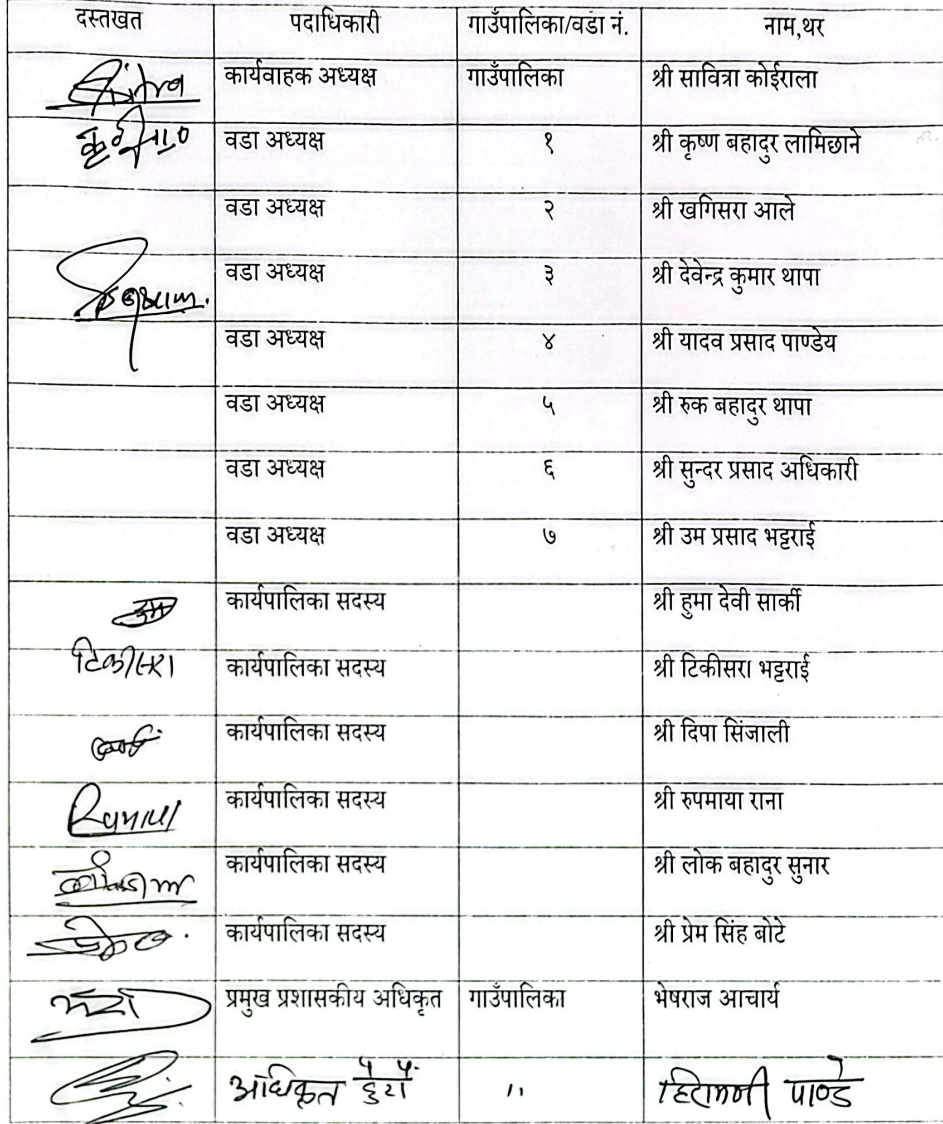 दस्तखत पदाधिकारी गाउँपालिका/वडा नं. नाम,थर
कार्यवाहक अध्यक्ष गाउँपालिका श्री सावित्रा कोईराला
वडा अध्यक्ष १ श्री कृष्ण बहादुर लामिछाने
वडा अध्यक्ष २ श्री खगिसरा आले
वडा अध्यक्ष ३ श्री देवेन्द्र कुमार थापा
वडा अध्यक्ष ४ श्री यादव प्रसाद पाण्डेय
वडा अध्यक्ष ५ श्री रुक बहादुर थापा
वडा अध्यक्ष ६ श्री सुन्दर प्रसाद अधिकारी
वडा अध्यक्ष ७ श्री उम प्रसाद भट्टराई
कार्यपालिका सदस्य श्री हुमा देवी सार्की
टिकीसरा कार्यपालिका सदस्य श्री टिकीसरा भट्टराई
कार्यपालिका सदस्य श्री दिपा सिंजाली
कार्यपालिका सदस्य श्री रुपमाया राना
कार्यपालिका सदस्य श्री लोक बहादुर सुनार
कार्यपालिका सदस्य श्री प्रेम सिंह बोटे
प्रमुख प्रशासकीय अधिकृत गाउँपालिका भेषराज आचार्य
अधिकृत छैटौं " पाण्डे